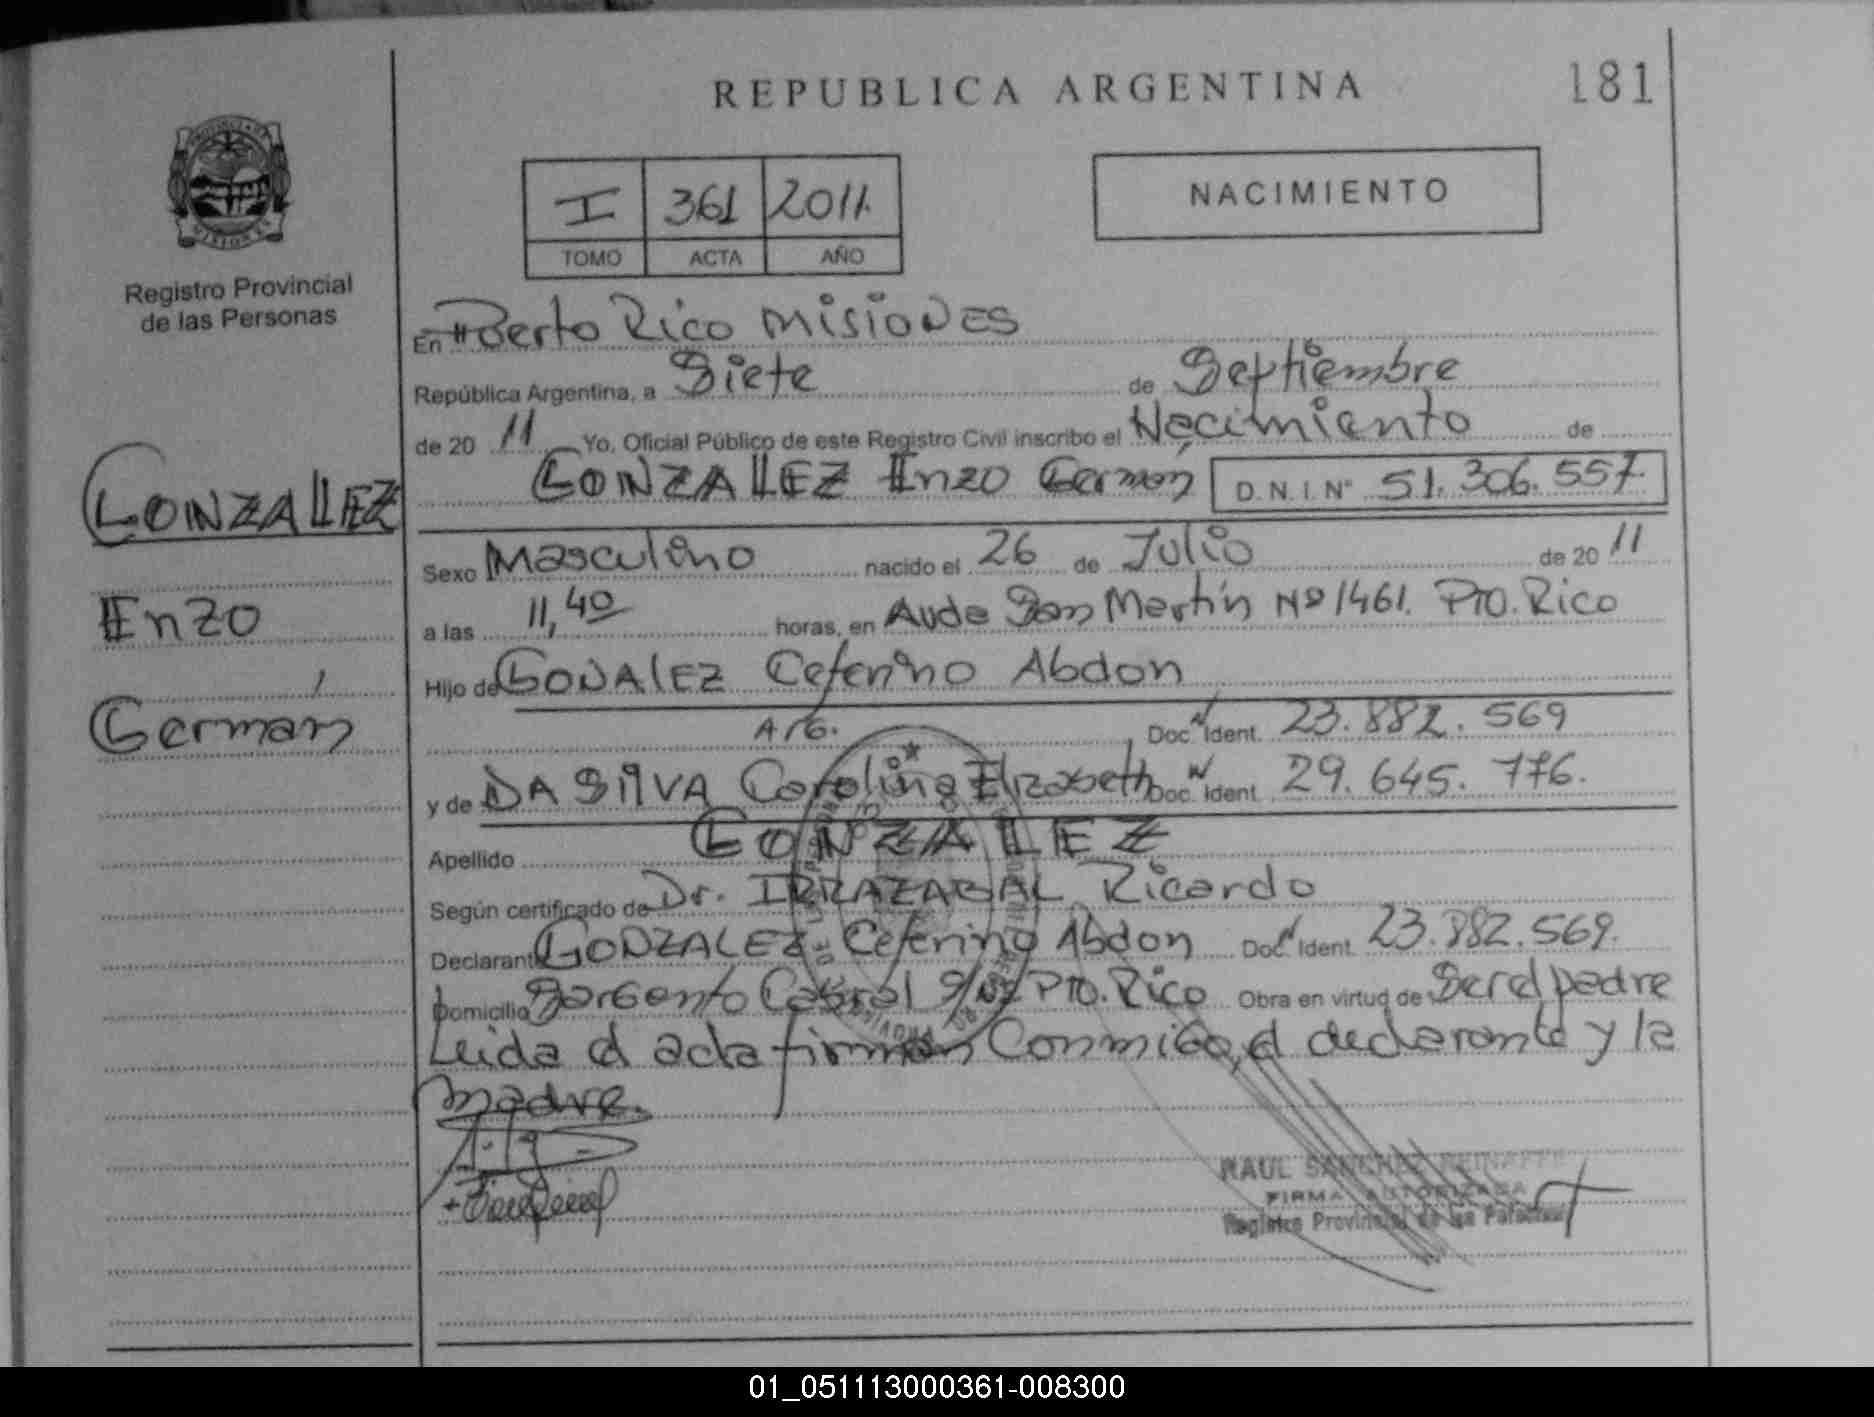 REPUBLICA ARGENTINA
181
I 361 2011
TOMO ACTA AÑO
NACIMIENTO
Registro Provincial
de las Personas
GONZALLEZ
Enzo
Germán
En Puerto Rico MISIONES
República Argentina, a Siete de Septiembre
de 20 11 Yo, Oficial Público de este Registro Civil inscribo el Nacimiento de
GONZALLEZ Enzo Germán D.N.I. Nº 51.306.557
Sexo Masculino nacido el 26 de Julio de 20 11
a las 11,40 horas, en Avda San Martín Nº 1461. Pto. Rico
Hijo de GONALEZ Ceferino Abdon
Arg. Doc. Ident. 23.882.569
y de DA SILVA Carolina Elizabeth Doc. Ident. 29.645.776.
Apellido GONZALEZ
Según certificado de Dr. IRRAZABAL Ricardo
Declarante GONZALEZ Ceferino Abdon Doc. Ident. 23.882.569.
Domicilio Sargento Cabral S/Nº Pto. Rico Obra en virtud de Ser el padre
Leida el acta firman Conmigo, el declarante y la
madre.
RAUL SANCHEZ REINAFFE
FIRMA AUTORIZADA
Registro Provincial de las Personas
01_051113000361-008300